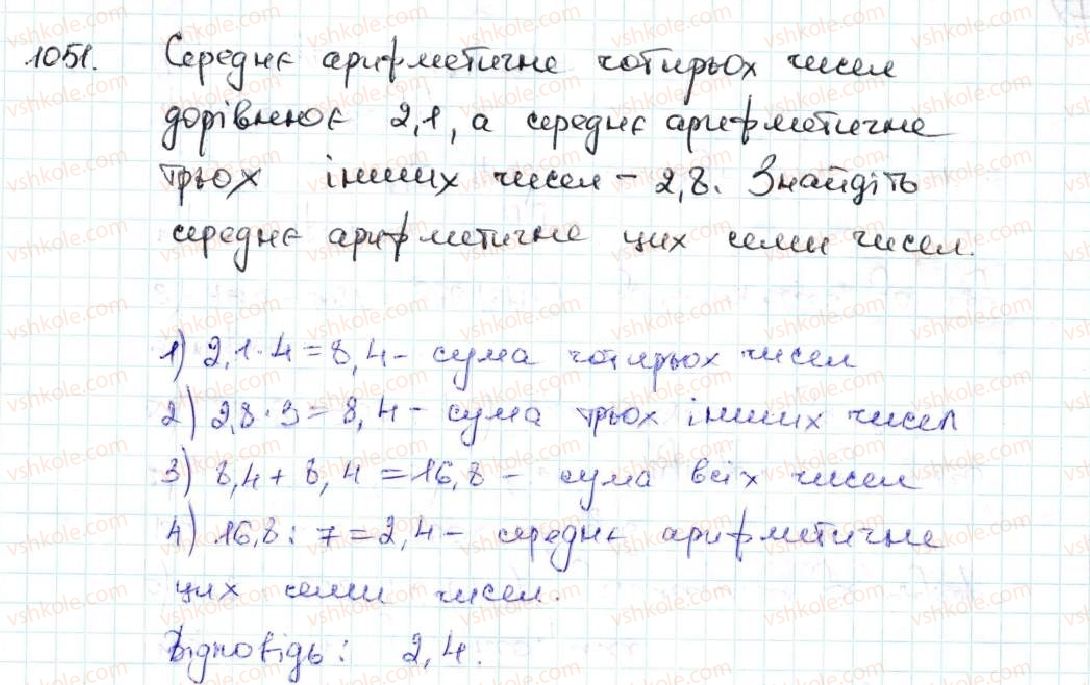 1051. Середнє арифметичне чотирьох чисел
дорівнює 2,1, а середнє арифметичне
трьох інших чисел - 2,8. Знайдіть
середнє арифметичне цих семи чисел.
1) 2,1 · 4 = 8,4 - сума чотирьох чисел
2) 2,8 · 3 = 8,4 - сума трьох інших чисел
3) 8,4 + 8,4 = 16,8 - сума всіх чисел
4) 16,8 : 7 = 2,4 - середнє арифметичне
цих семи чисел.
Відповідь: 2,4.
vshkole.com